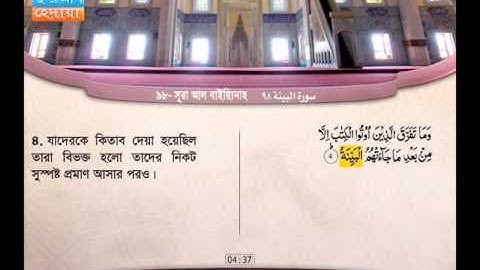 হেদায়া
৯৮- সূরা আল বাইয়্যিনাহ سورة البينة ٩٨
৪. যাদেরকে কিতাব দেয়া হয়েছিল
তারা বিভক্ত হলো তাদের নিকট
সুস্পষ্ট প্রমাণ আসার পরও।
وَمَا تَفَرَّقَ الَّذِينَ أُوتُوا الْكِتٰبَ إِلَّا
مِنْ بَعْدِ مَا جَاءَتْهُمُ الْبَيِّنَةُ ٤
04:37